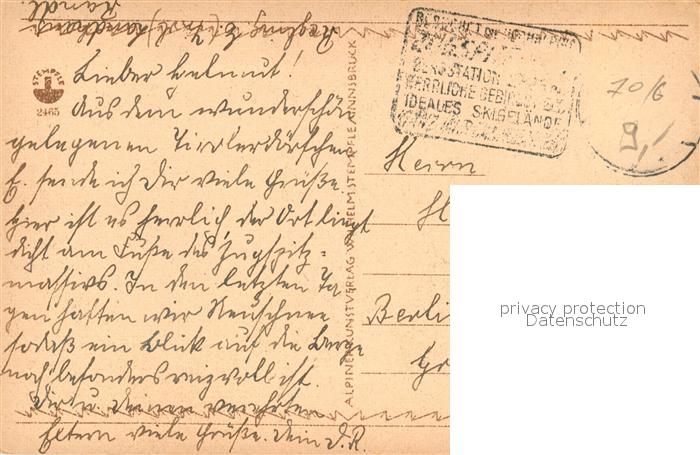 Lieber Helmut!
Aus dem wunderschön
gelegenen Tirolerdörfchen
E. sende ich Dir viele Grüße.
Hier ist es herrlich, der Ort liegt
dicht am Fuße des Zugspitz-
massivs. In den letzten Ta-
gen hatten wir Neuschnee
sodaß ein Blick auf die Berge
noch besonders reizvoll ist.
Dir u. Deinen verehrten
Eltern viele Grüße. Dein D.R.
STEMPFLE
2465
ALPINER KUNSTVERLAG WILHELM STEMPFLE, INNSBRUCK
BERGSTATION
HERRLICHE
IDEALES SKIGELÄNDE
70/6
9,-
Herrn
H
Berlin
privacy protection
Datenschutz